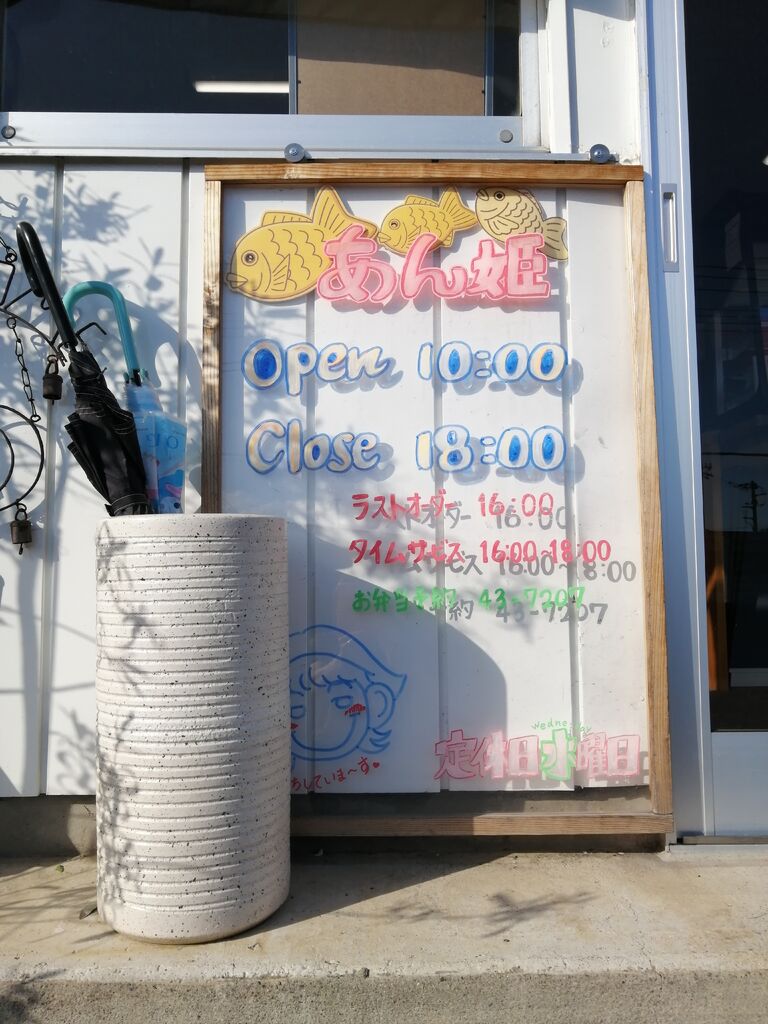 あん姫
Open 10:00
Close 18:00
ラストオーダー 16:00
タイムサービス 16:00~18:00
お弁当予約 43-7207
Wednesday
定休日水曜日
ちしていま〜す